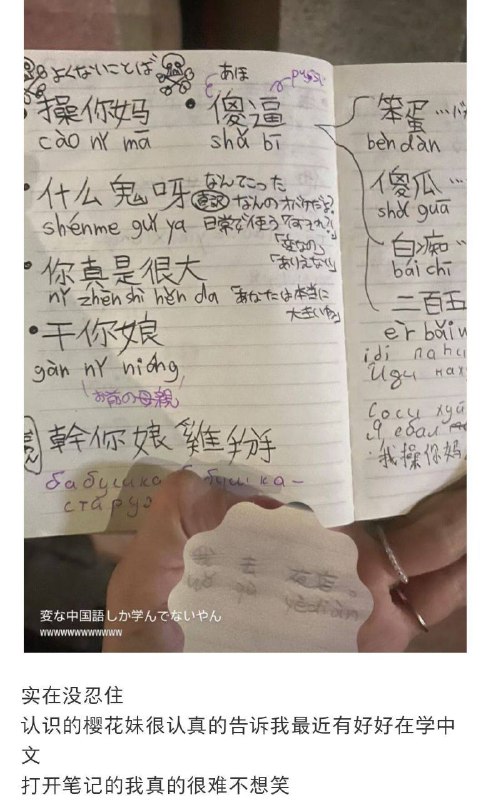 よくないことば
操你妈
cào nǐ mā
あほ
傻逼
shǎ bī
什么鬼呀
shénme guǐ ya
なんてこった
意訳 なんのオバケだよ?
日常で使う「何それ?!」
「変なの」
「ありえない」
你真是很大
nǐ zhēn shì hěn da
「あなたは本当に
大きいね」
干你娘
gàn nǐ nióng
お前の母親
幹你娘
бабушка бабушка-
старух
笨蛋…
bèn dàn
傻瓜…
shǎ guā
白痴…
bái chī
二百五
èr bǎi w
idi nahu
Иди нах
Соси хуй
Я ебал
我操你妈
我 去 夜店。
wǒ yèdiàn
変な中国語しか学んでないやん
wwwwwwwwwwww
实在没忍住
认识的樱花妹很认真的告诉我最近有好好在学中
文
打开笔记的我真的很难不想笑